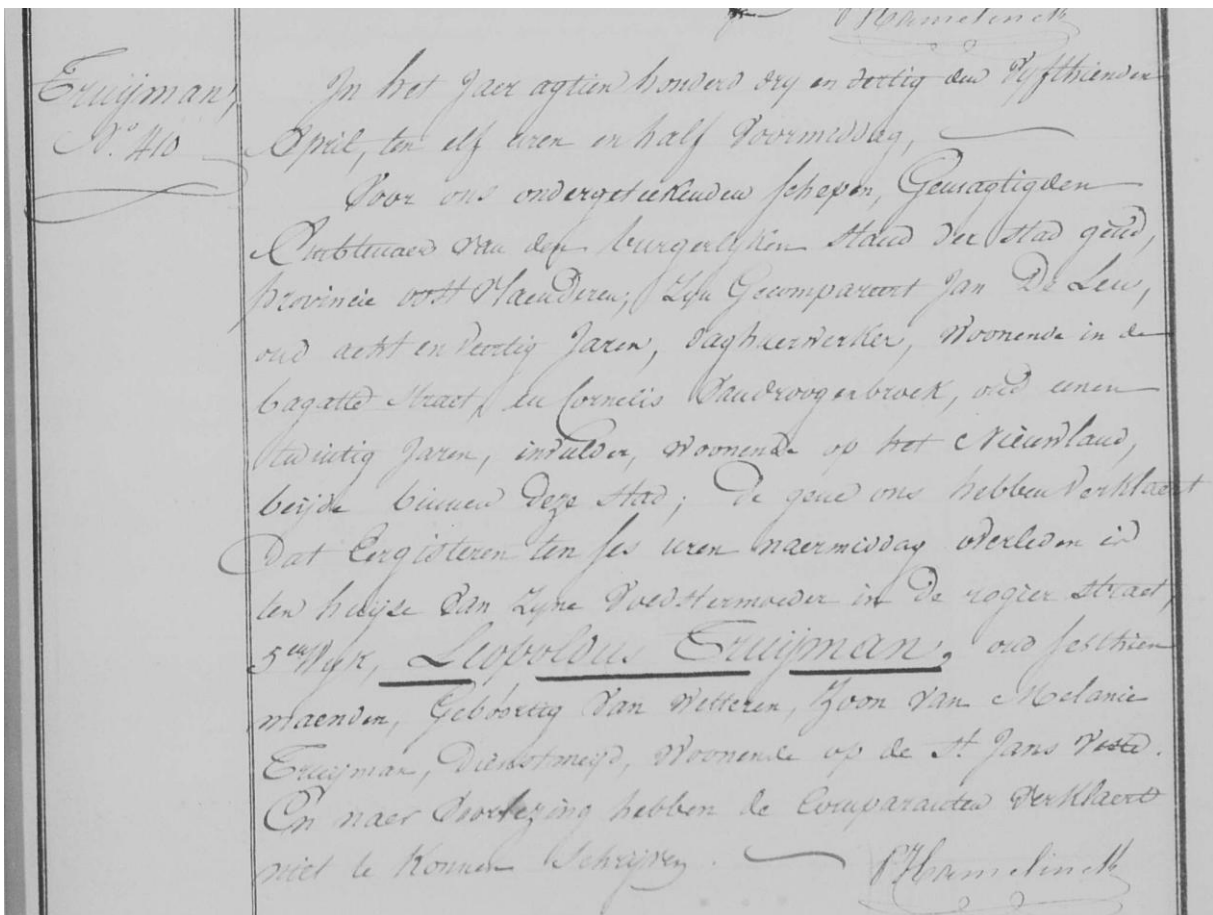 P Hamelinck
Truijman,
N.º 410
In het Jaer agtien honderd dry en dertig den Vyfthienden
April, ten elf uren en half Voormiddag,
Voor ons ondergeteekenden schepen, Gemagtigden
Ambtenaer van den burgerlyken stand der stad gend,
provincie oost Vlaenderen; Zyn Gecompareert Jan De Leu,
oud acht en veertig Jaren, daghuerwerker, Woonende in de
bagatte straet, en Cornelis Vandroogenbroek, oud eenen
twintig Jaren, invulder, Woonende op het Nieuwland,
beijde binnen deze stad; de gene ons hebben verklaert
Dat Eergisteren ten ses uren naermiddag overleden is
ten huijse van Zyne Voedstermoeder in de rogier straet,
5en Wyk, Leopoldus Truijman, oud sesthien
maenden, Geboortig van Wetteren, Zoon van Melanie
Truijman, Dienstmeijd, Woonende op de St Jans Veste.
En naer Voorlezing hebben de Comparanten Verklaert
niet te Konnen Schrijven.
P Hamelinck